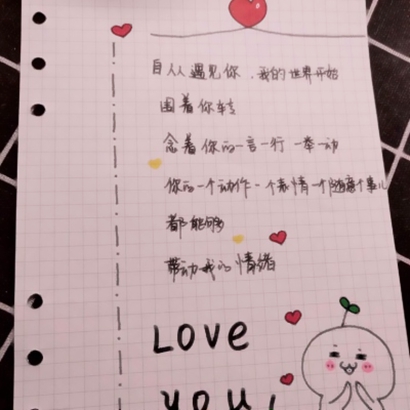 自从遇见你，我的世界开始
围着你转
念着你的一言一行 一举一动
你的一个动作一个表情一个
都能够
带动我的情绪
Love
you!